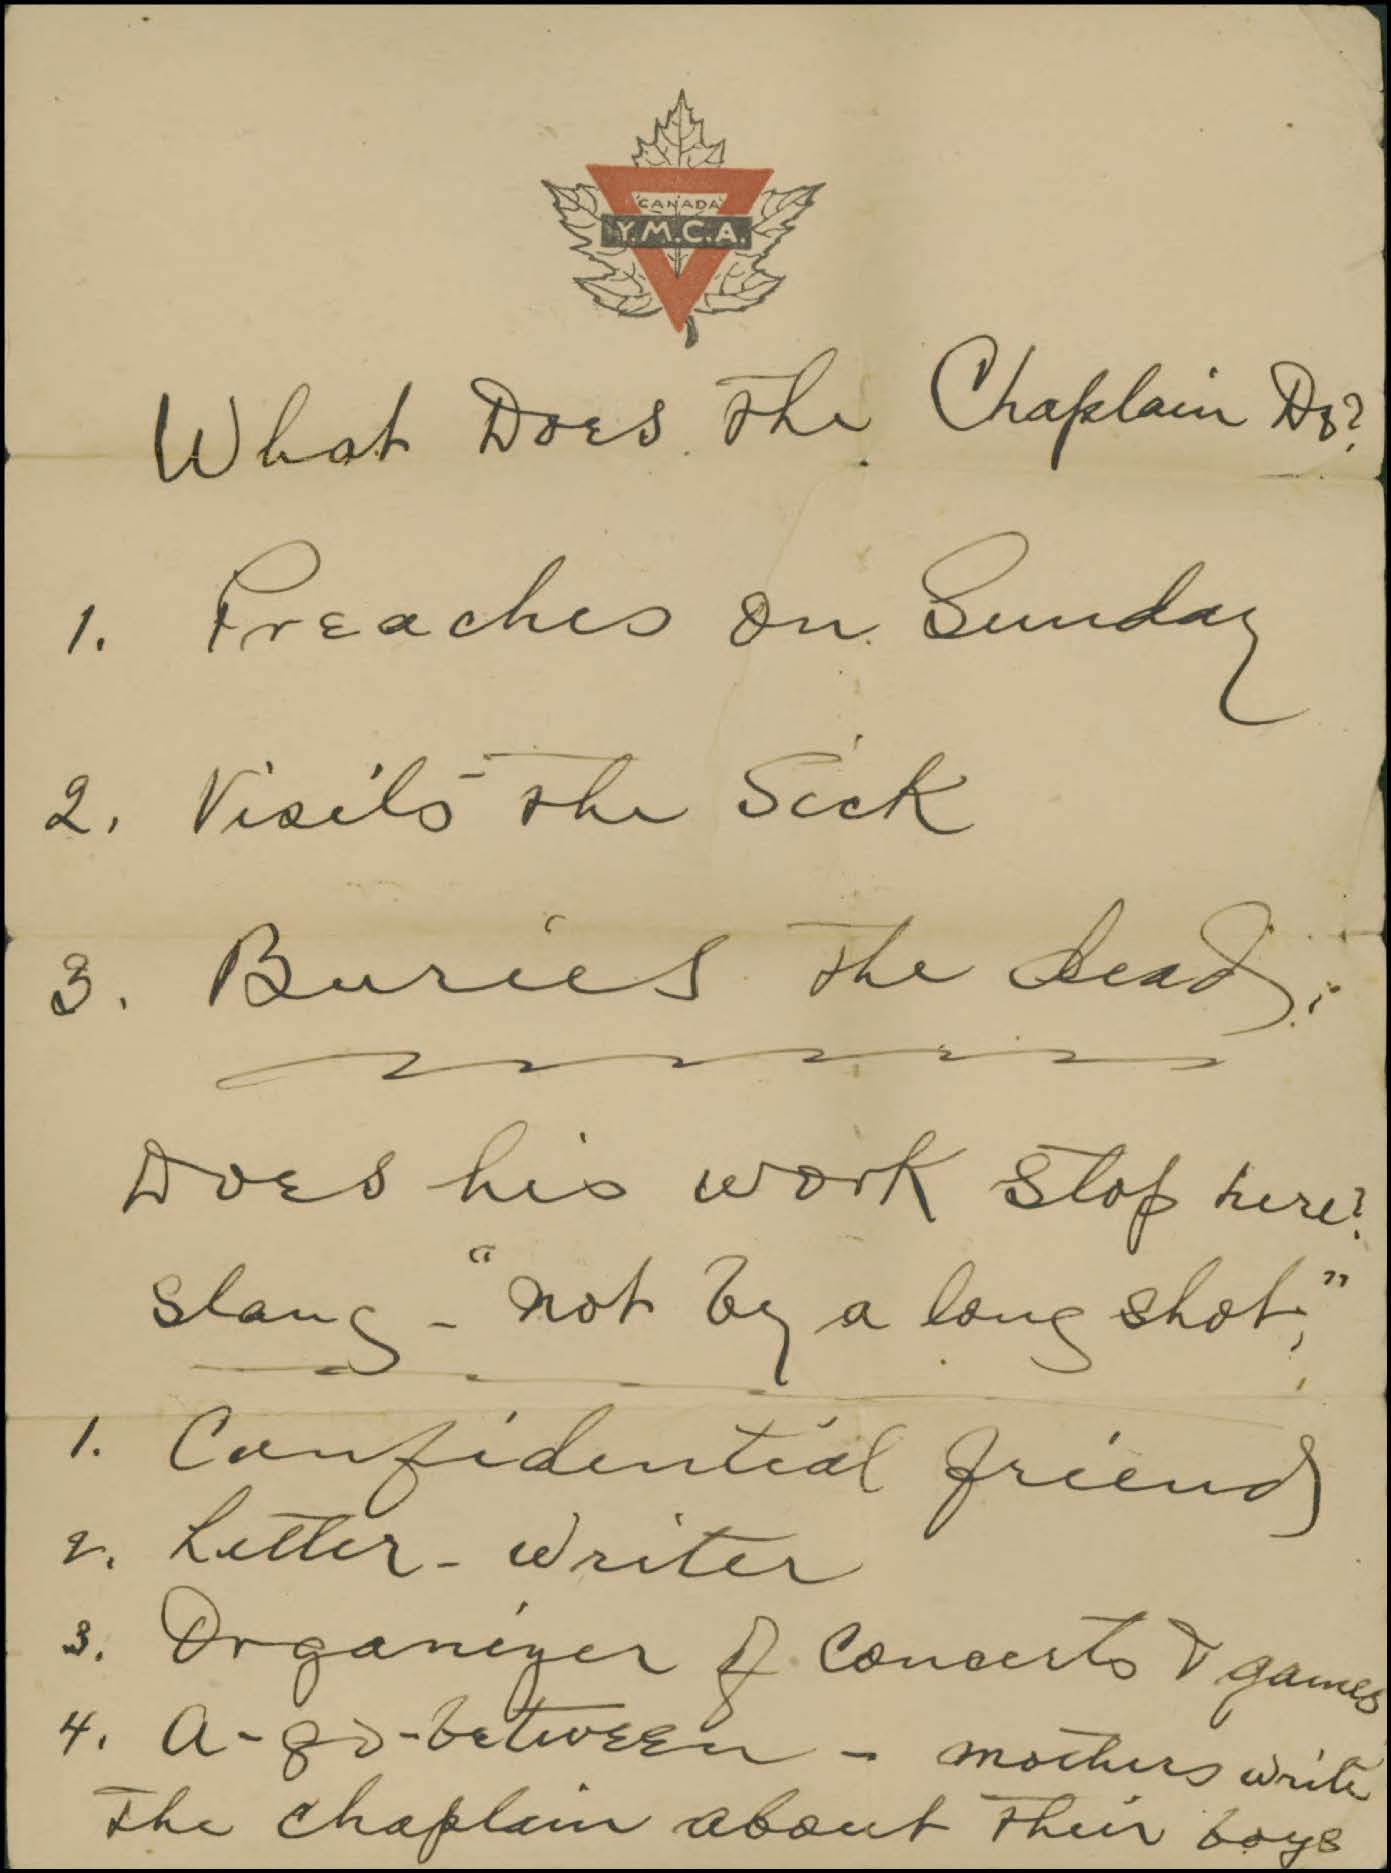 CANADA
Y.M.C.A.
What Does the Chaplain Do?
1. Preaches on Sunday
2. Visits the Sick
3. Buries the dead.
Does his work stop here?
Slang - "not by a long shot,"
1. Confidential friend
2. Letter-writer
3. Organizer of concerts & games
4. A-go-between - mothers write
the chaplain about their boys